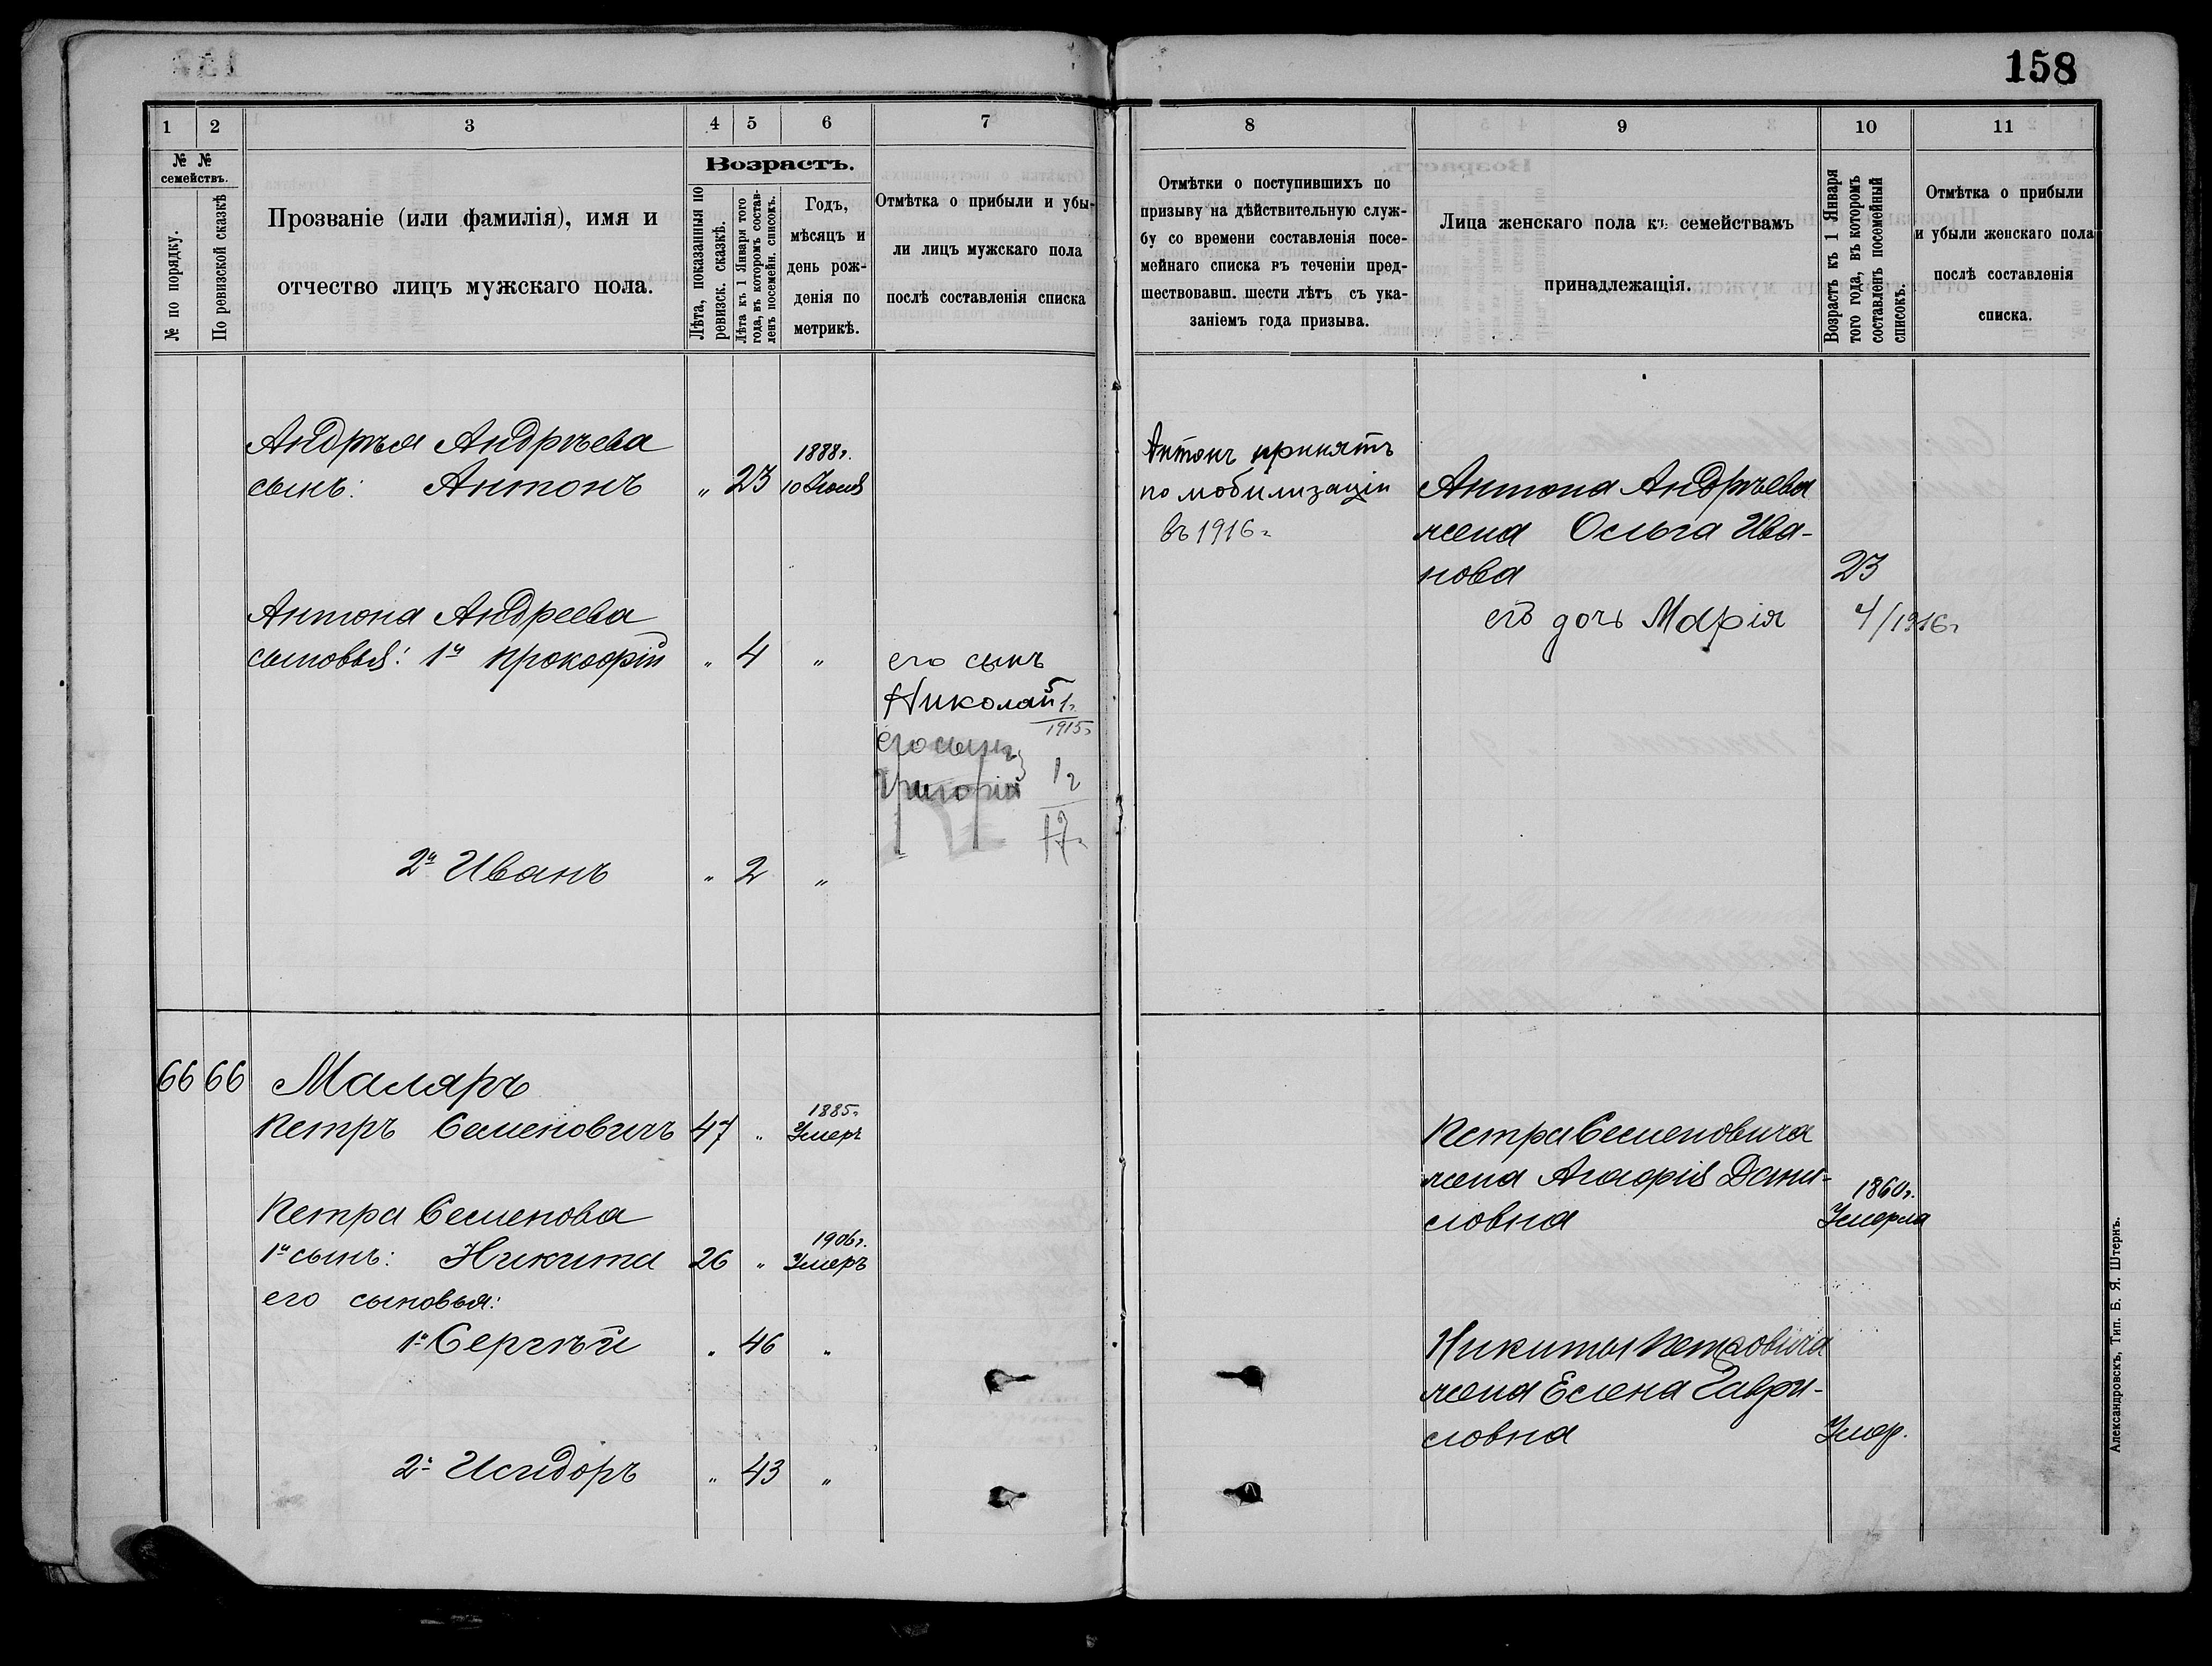 158
1
2
3
4
5
6
7
8
9
10
11
№ № семействъ.
№ по порядку.
По ревизской сказкѣ
Прозваніе (или фамилія), имя и
отчество лицъ мужскаго пола.
Возрастъ.
Лѣта, показанныя по
ревизск. сказкѣ.
Лѣта къ 1 Января того
года, въ которомъ состав-
ленъ посемейн. списокъ.
Годъ,
мѣсяцъ и
день рож-
денія по
метрикѣ.
Отмѣтка о прибыли и убы-
ли лицъ мужскаго пола
послѣ составленія списка
Отмѣтки о поступившихъ по
призыву на дѣйствительную служ-
бу со времени составленія посе-
мейнаго списка въ теченіи пред-
шествовавш. шести лѣтъ съ ука-
заніемъ года призыва.
Лица женскаго пола къ семействамъ
принадлежащія.
Возрастъ къ 1 Января
того года, въ которомъ
составленъ посемейный
списокъ.
Отмѣтка о прибыли
и убыли женскаго пола
послѣ составленія
списка.
Андрѣя Андрѣева
сынъ: Антонъ " 23 1888г. 10 Іюля
Антонъ принятъ
по мобилизаціи
въ 1916г.
Антона Андрѣева
жена Ольга Ива-
нова 23
его дочь Марія 4/1916г
Антона Андреева
сыновья: 1й Прокофій " 4 "
его сынъ
Николай 1г.
1915г
его сынъ
Григорій 1г
17г.
2й Иванъ " 2 "
66 66 Маляръ
Петръ Семеновичъ 47 " 1885г. Умеръ
Петра Семеновича
жена Агафія Дани-
ловна 1860г. Умерла
Петра Семенова
1й сынъ: Никита 26 " 1906г. Умеръ
его сыновья:
1й Сергѣй " 46 "
Никиты Петровича
жена Елена Гаври-
ловна Умер.
2й Исидоръ " 43 "
Александровскъ, Тип. Б. Я. Штернъ.